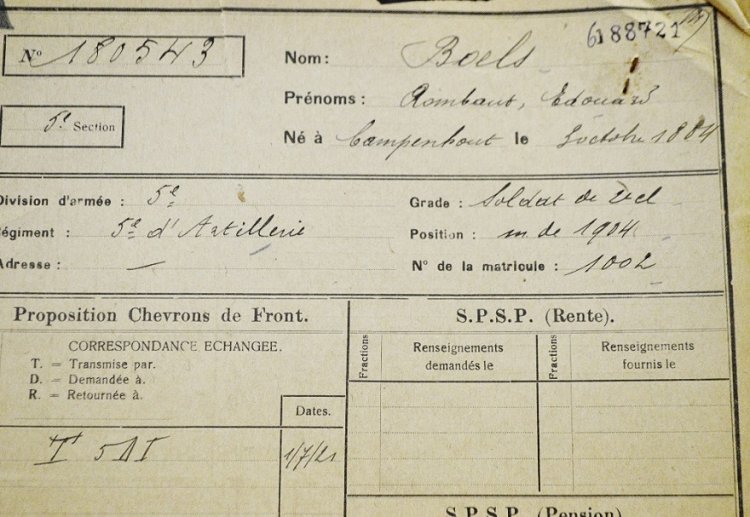 6188721
Nº 180543
Nom: Boels
Prénoms: Rombaut, Edouard
5e Section
Né à Campenhout le 3 octobre 1884
Division d'armée : 5e
Grade: Soldat de
Régiment : 5e d'Artillerie
Position : m de 1904
Adresse : —
Nº de la matricule : 1002
Proposition Chevrons de Front.
CORRESPONDANCE ECHANGEE.
T. = Transmise par.
D. = Demandée à.
R. = Retournée à.
Dates.
T 5DI 1/7/21
S.P.S.P. (Rente).
Fractions
Renseignements
demandés le
Fractions
Renseignements
fournis le
S.P.S.P. (Pension)